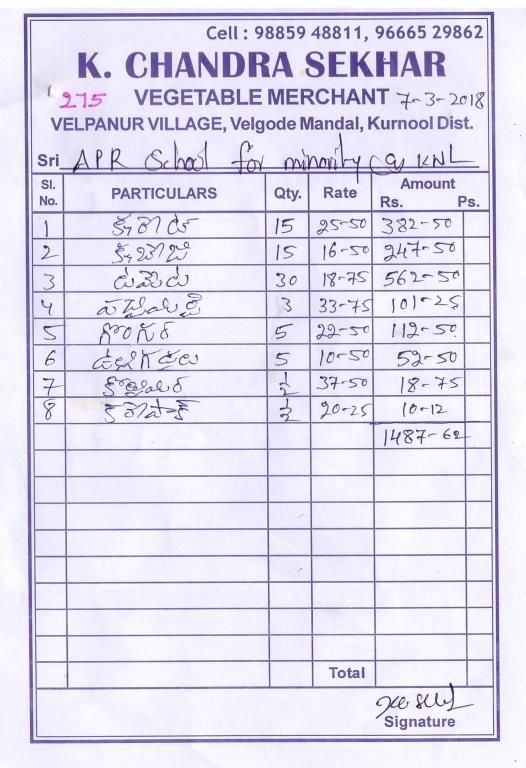 Cell : 98859 48811, 96665 29862
K. CHANDRA SEKHAR
275 VEGETABLE MERCHANT 7-3-2018
VELPANUR VILLAGE, Velgode Mandal, Kurnool Dist.
Sri APR School for minority @ KNL
Sl. No. PARTICULARS Qty. Rate Amount Rs. Ps.
1 క్యారెట్ 15 25-50 382-50
2 15 16-50 247-50
3 టమోట 30 18-75 562-50
4 3 33-75 101-25
5 గొంగుర 5 22-50 112-50
6 ఉల్లిగడ్డలు 5 10-50 52-50
7 ½ 37-50 18-75
8 ½ 20-25 10-12
1487-62
Total
Signature